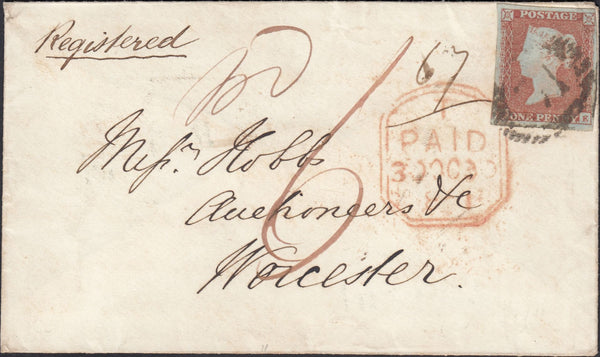 Registered
POSTAGE
ONE PENNY
E
67
6
PAID
Messrs Hobbs
Auctioneers &c
Worcester.